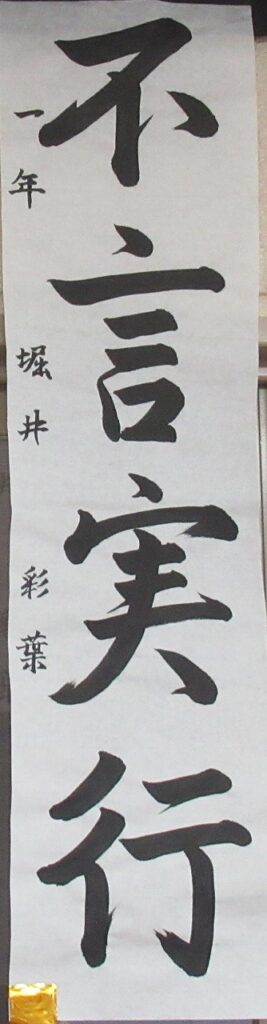 不言実行
一年 堀井 彩葉